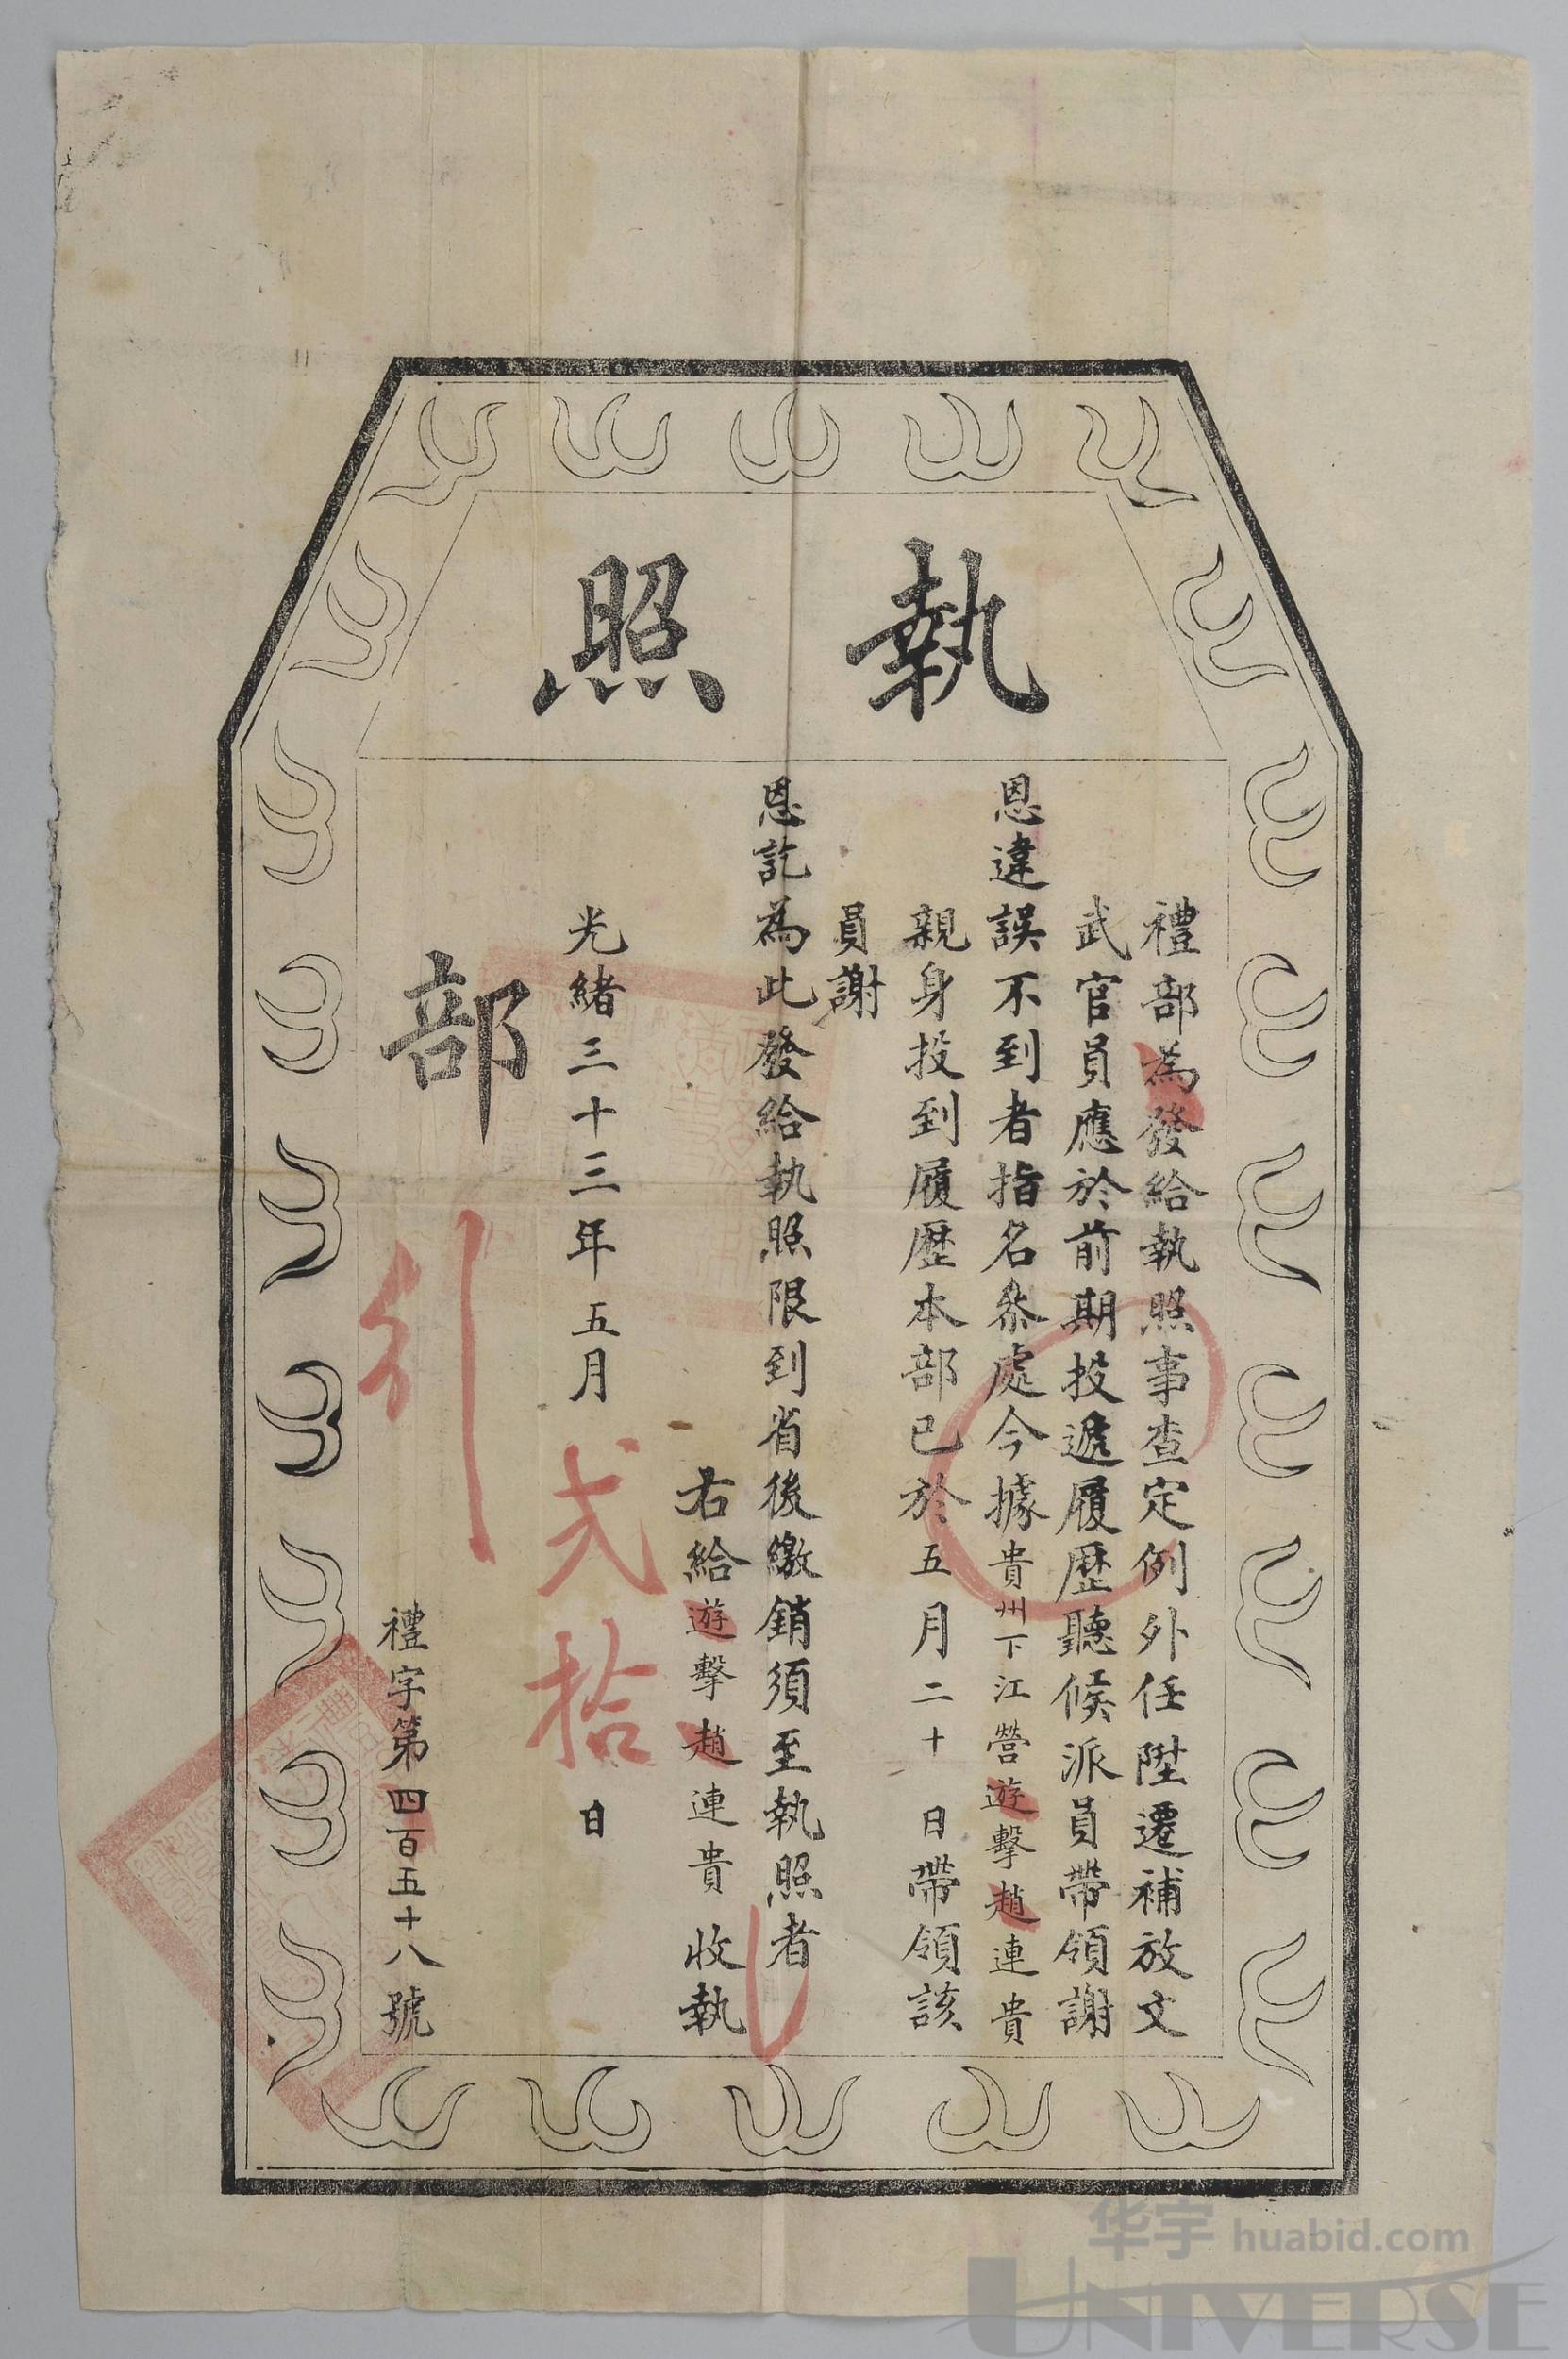 執照
禮部為發給執照事查定例外任陞遷補放文
武官員應於前期投遞履歷聽候派員帶領謝
恩違誤不到者指名叅處今據貴州下江營遊擊趙連貴
親身投到履歷本部已於五月二十日帶領該
員謝
恩訖為此發給執照限到省後繳銷須至執照者
右給遊擊趙連貴收執
光緒三十三年五月弍拾日
部行
禮字第四百五十八號
华宇 huabid.com
UNIVERSE